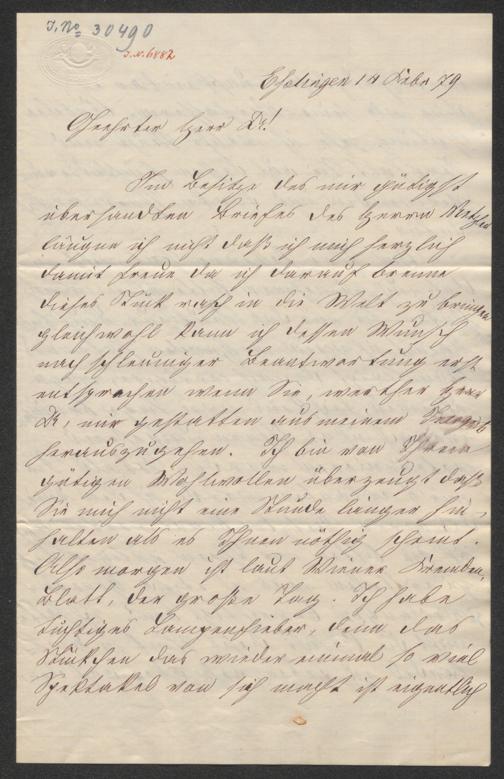 J. No 30490
J.N. 6882
14 Febr 79
Geehrter Herr Dr!
Im Besitze des mir gütigst
übersandten Briefes des Herrn
läugne ich nicht daß ich mich herzlich
damit freue da ich darauf brenne
dieses Stück rasch in die Welt zu bringen
gleichwohl kann ich dessen Wunsch
nach schleuniger Beantwortung erst
entsprechen wenn Sie, werther Herr
Dr, mir gestatten aus meinem
herauszugehen. Ich bin von Ihrem
gütigen Wohlwollen überzeugt daß
Sie mich nicht eine Stunde länger hin-
halten als es Ihnen nöthig scheint.
Also morgen ist laut Wiener Fremden-
blatt, der große Tag. Ich habe
tüchtiges Lampenfieber, denn das
Stückchen das wieder einmal so viel
Spektakel von sich macht ist eigentlich